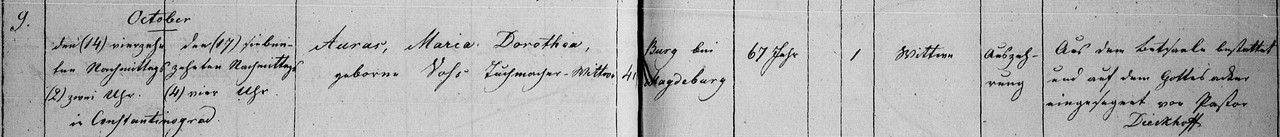 9.
October
den (14) vierzehn-
ten Nachmittags
(2) zwei Uhr.
den (17) sieben-
zehnten Nachmittags
(4) vier Uhr.
in Constantinograd.
Auras, Maria Dorothea,
geborne Voss Tuchmacher-Wittwe
41
Burg bei
Magdeburg
67 Jahr
1
Wittwe
Auszeh-
rung
Aus dem Betsaale bestattet
und auf dem Gottesacker
eingesegnet von Pastor
Dieckhoff